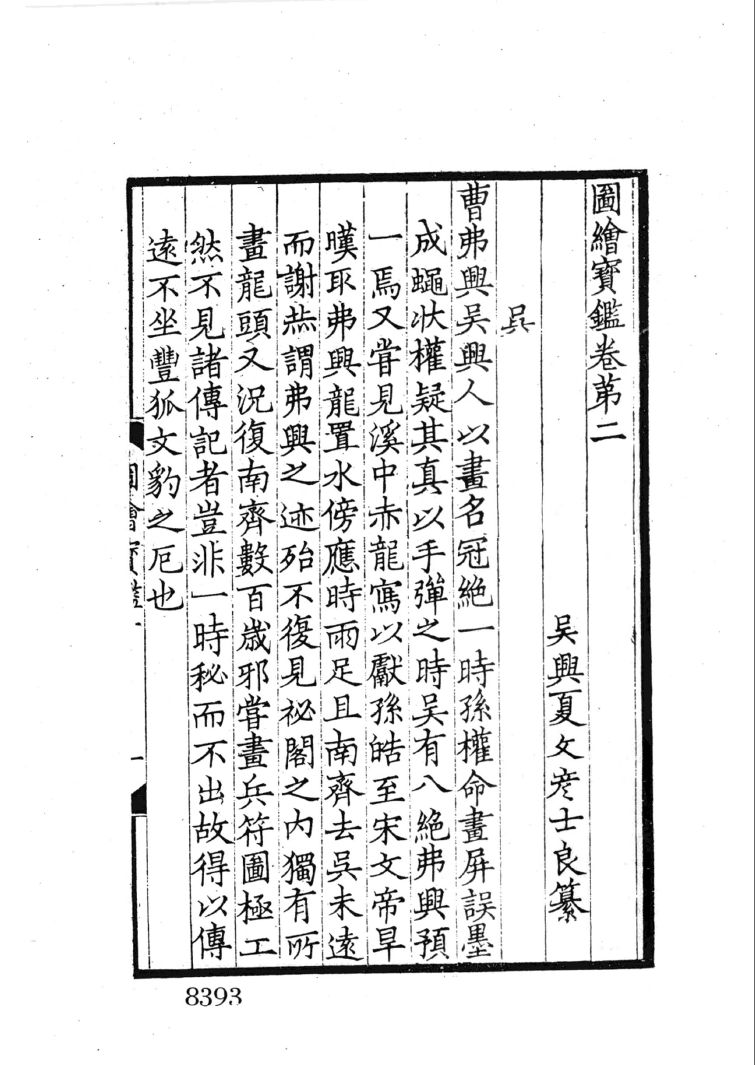 圖繪寶鑑卷第二
吳興夏文彥士良纂
吳
曹弗興吳興人以畫名冠絶一時孫權命畫屏誤墨
成蠅狀權疑其真以手彈之時吳有八絶弗興預
一焉又嘗見溪中赤龍寫以獻孫皓至宋文帝旱
暵取弗興龍置水傍應時雨足且南齊去吳未遠
而謝恭謂弗興之迹殆不復見祕閣之内獨有所
畫龍頭又況復南齊數百歳邪嘗畫兵符圖極工
然不見諸傳記者豈非一時秘而不出故得以傳
遠不坐豐狐文豹之厄也
圖會寶監
一
8393